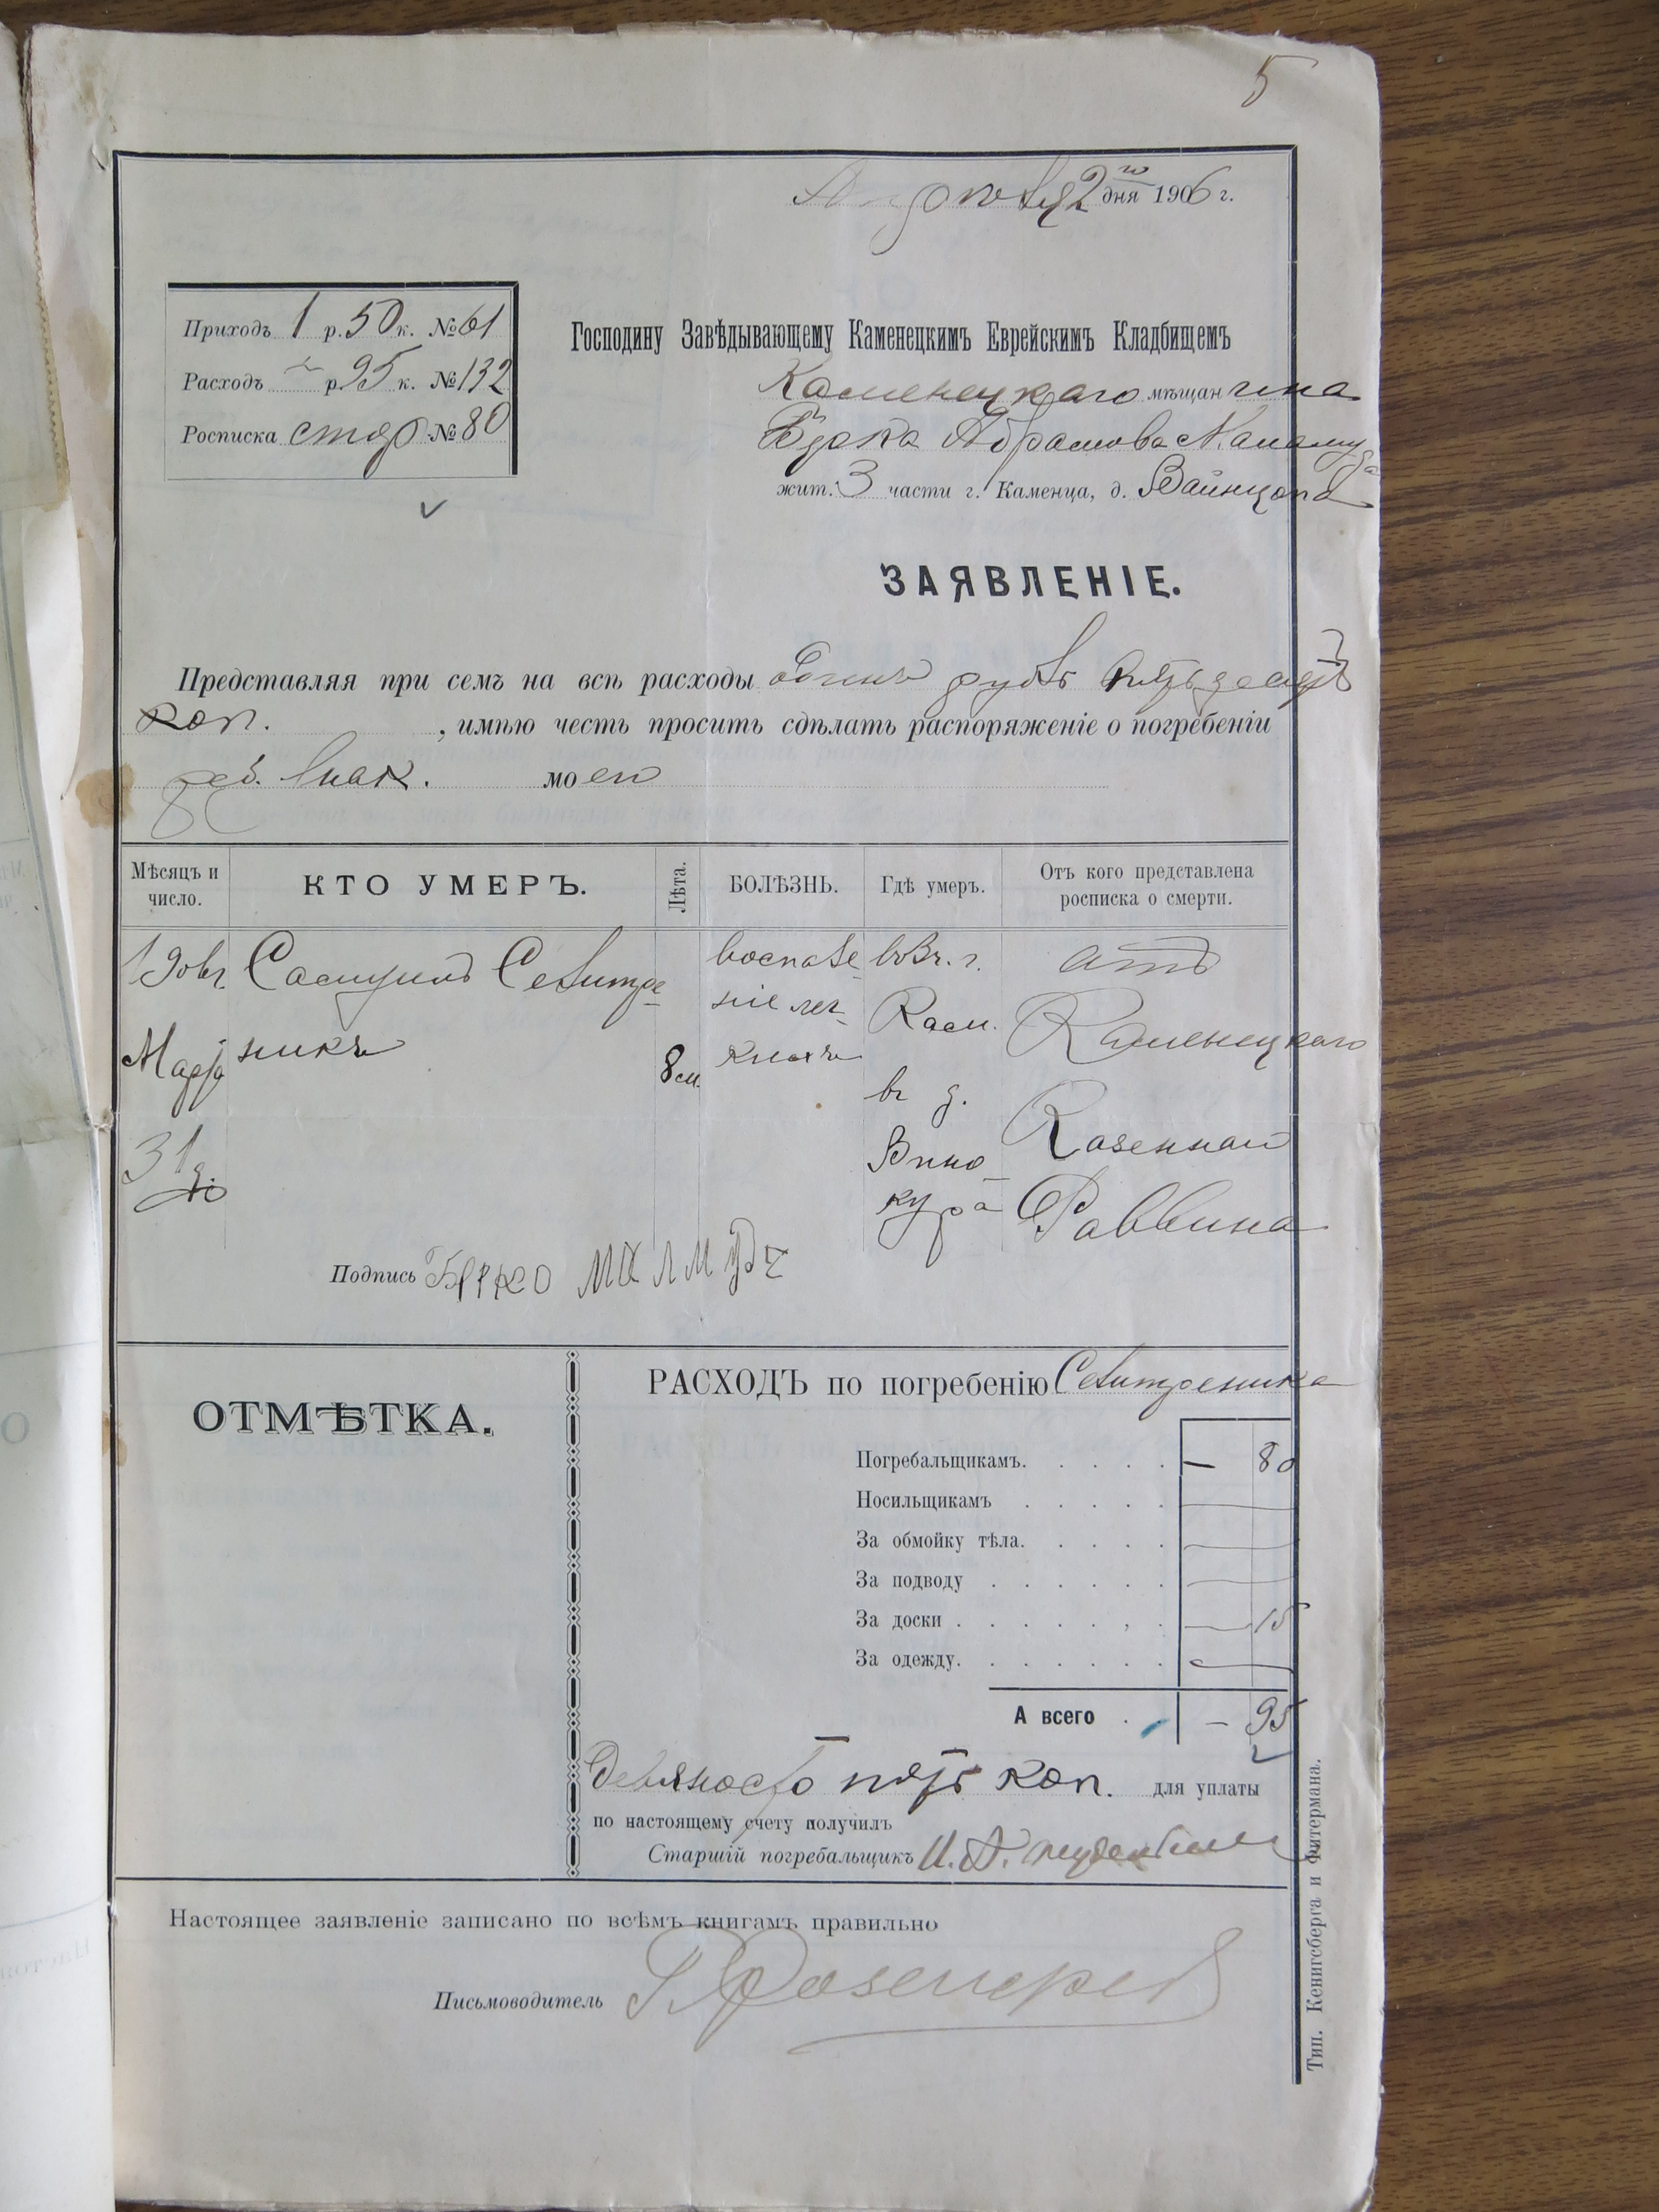 5
Апрѣля 2 го дня 1906 г.
Приходъ 1 р. 50 к. № 61
Расходъ — р. 95 к. № 132
Росписка стор № 80
Господину Завѣдывающему Каменецкимъ Еврейскимъ Кладбищемъ
Каменецкаго мѣщанина
Берка Абрамова
жит. 3 части г. Каменца, д. Вайнцапа
ЗАЯВЛЕНІЕ.
Представляя при семъ на всѣ расходы одинъ рубль пятьдесятъ
коп. , имѣю честь просить сдѣлать распоряженіе о погребеніи
реб. внак. моего
Мѣсяцъ и число. КТО УМЕРЪ. Лѣта. БОЛѢЗНЬ. Гдѣ умеръ. Отъ кого представлена росписка о смерти.
19 Самуилъ Селитре- воспале- г. отъ
Марта никъ 8 м. ніе лег- Кам. Каменецкаго
31 д. кихъ въ д. Казеннаго
Вино-
кура Раввина
Подпись Берко Малмудъ
ОТМѢТКА.
РАСХОДЪ по погребенію Селитреника
Погребальщикамъ. — 80
Носильщикамъ
За обмойку тѣла.
За подводу
За доски 15
За одежду.
А всего — 95
Девяносто пять коп. для уплаты
по настоящему счету получилъ
Старшій погребальщикъ
Настоящее заявленіе записано по всѣмъ книгамъ правильно
Письмоводитель
Тип. Кенигсберга и Фитермана.